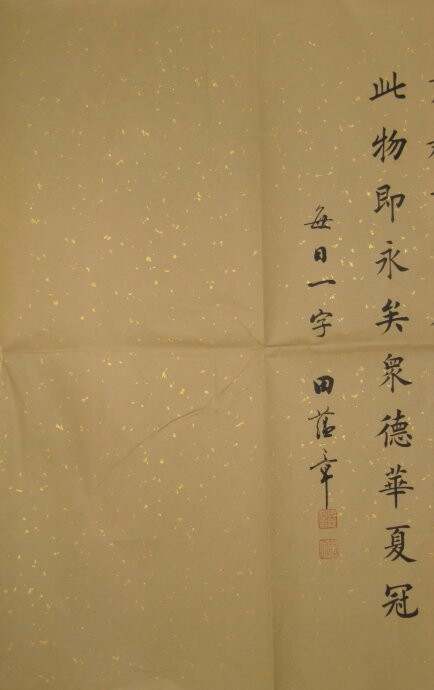 此物即永矣眾德華夏冠
每日一字 田蕴章